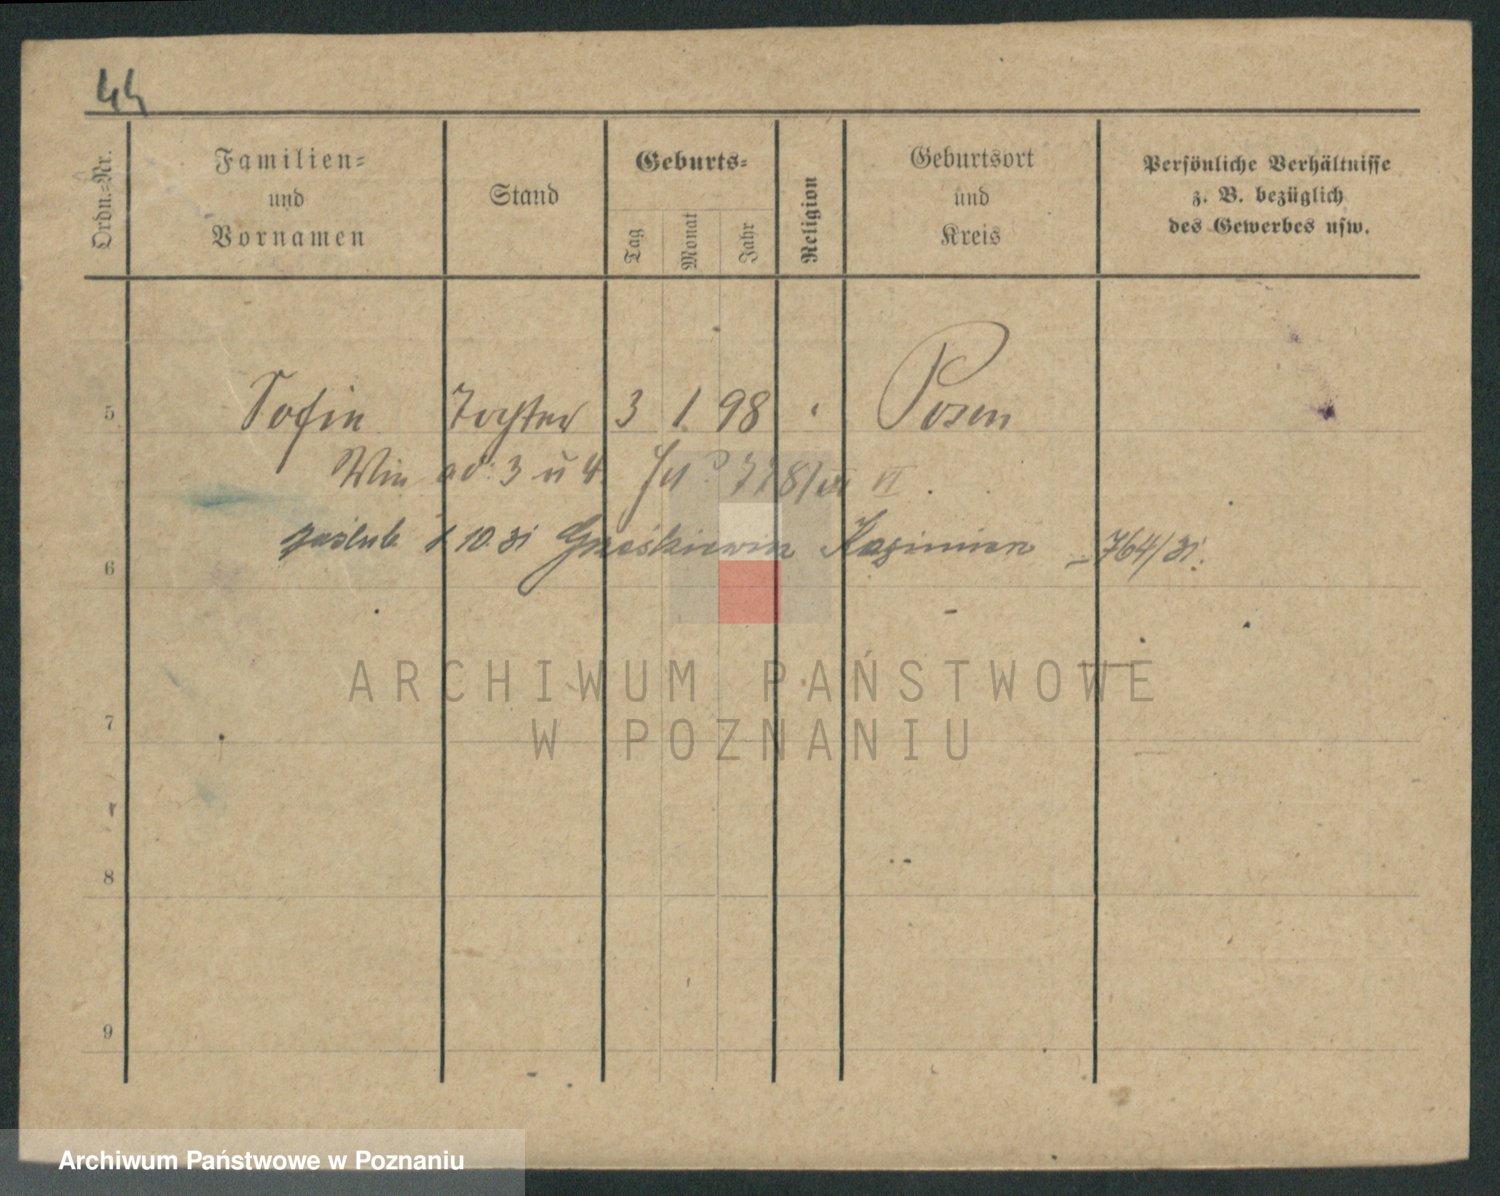 44
Ordn.-Nr.
Familien-
und
Vornamen
Stand
Geburts-
Tag
Monat
Jahr
Religion
Geburtsort
und
Kreis
Persönliche Verhältnisse
z. B. bezüglich
des Gewerbes usw.
5 Sofie Tochter 3 1. 98 " Posen
Wie ad: 3 u 4.
zaślub. 1 10. 31 Kazimierz – 764/31.
6
7
8
9
ARCHIWUM PAŃSTWOWE
W POZNANIU
Archiwum Państwowe w Poznaniu